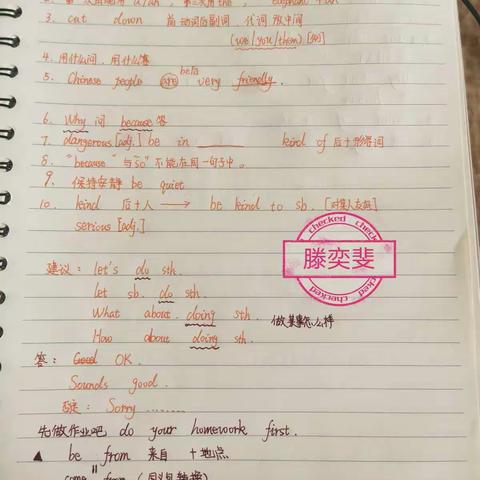 3. cut down 前 动词后副词, 代词 放中间
(us/you/them) [宾]
4. 用什么问, 用什么答
be后
5. Chinese people are very friendly.
6. Why 问 because 答
7. dangerous [adj.] be in ______ kind of 后+形容词
8. "because" 与"so"不能在同一句子中。
9. 保持安静 be quiet
10. kind 后+人 → be kind to sb. [对某人友好]
serious [adj.]
checked
滕奕斐
checked
建议: let's do sth.
let sb. do sth.
What about doing sth. 做某事怎么样
How about doing sth.
答: Good OK.
Sounds good.
否定: Sorry ........
先做作业吧 do your homework first.
▲ be from 来自 +地点
come from